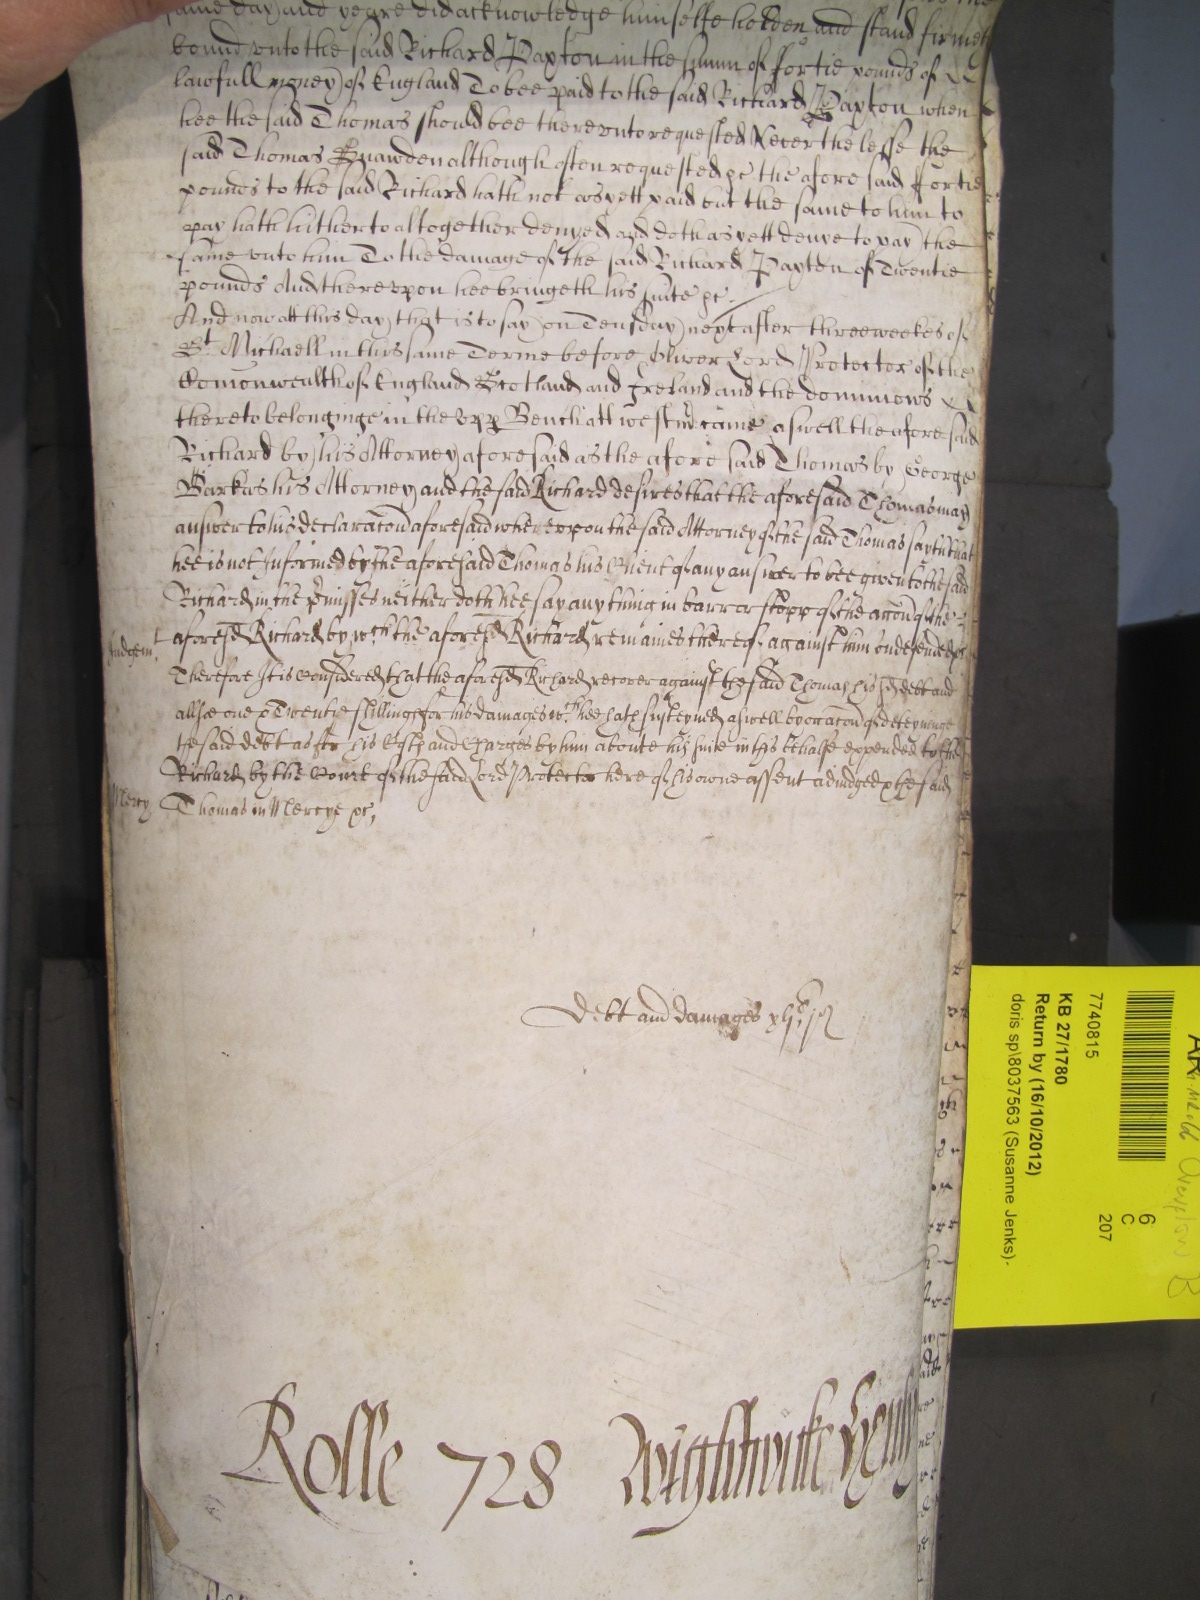 same day and yeare did acknowledge himselfe holden and stand firmely
bound unto the said Richard Paxton in the summ of fortie pounds of
lawfull money of England To bee paid to the said Richard Paxton when
hee the said Thomas should bee thereunto requested Neverthelesse the
said Thomas although often requested &c the aforesaid fortie
pounds to the said Richard hath not as yett paid but the same to him to
pay hath hitherto altogether denyed and doth as yett denye to pay the
same unto him To the damage of the said Richard Paxton of Twentie
pounds And thereupon hee bringeth his suite &c
And now att this day that is to say on Tensday next after three weekes of
St Michaell in this same Terme before Oliver Lord Protector of the
Comonwealth of England Scotland and Ireland and the dominions
thereto belonginge in the upp Bench att westmr came aswell the aforesaid
Richard by his Attorney aforesaid as the aforesaid Thomas by George
Barkas his Attorney and the said Richard desires that the aforesaid Thomas may
answer to his declaracon aforesaid whereupon the said Attorney of the said Thomas sayth that
hee is not Informed by the aforesaid Thomas his Client of any answer to bee given to the said
Richard in the pmisses neither doth hee say any thing in barr or stopp of the accon of the
aforesd Richard by wch the aforesd Richard remaines thereof against him undefended &c
Judgemt
Therefore It is considered that the aforesd Richard recover against the said Thomas his sd debt and
allsoe one & Twentie shillings for his damages wch hee hath susteyned aswell by occacon of deteyninge
the said debt as for his Costs and Charges by him aboute his suite in this behalfe expended to the
Richard by the Court of the said Lord Protector here of his owne assent adiudged & the said
Mercy
Thomas in Mercye &c
Debt and damages xljli js
Rolle 728 Wightwicke Henly
7740815
KB 27/1780
Return by (16/10/2012)
doris sp\8037563 (Susanne Jenks)-
6
C
207